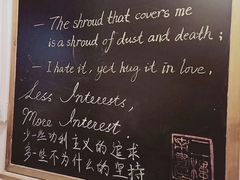 — The shroud that covers me
is a shroud of dust and death;
— I hate it, yed hug it in love.
Less Interests,
More Interest.
少一些功利主义的追求
多一些不为什么的坚持